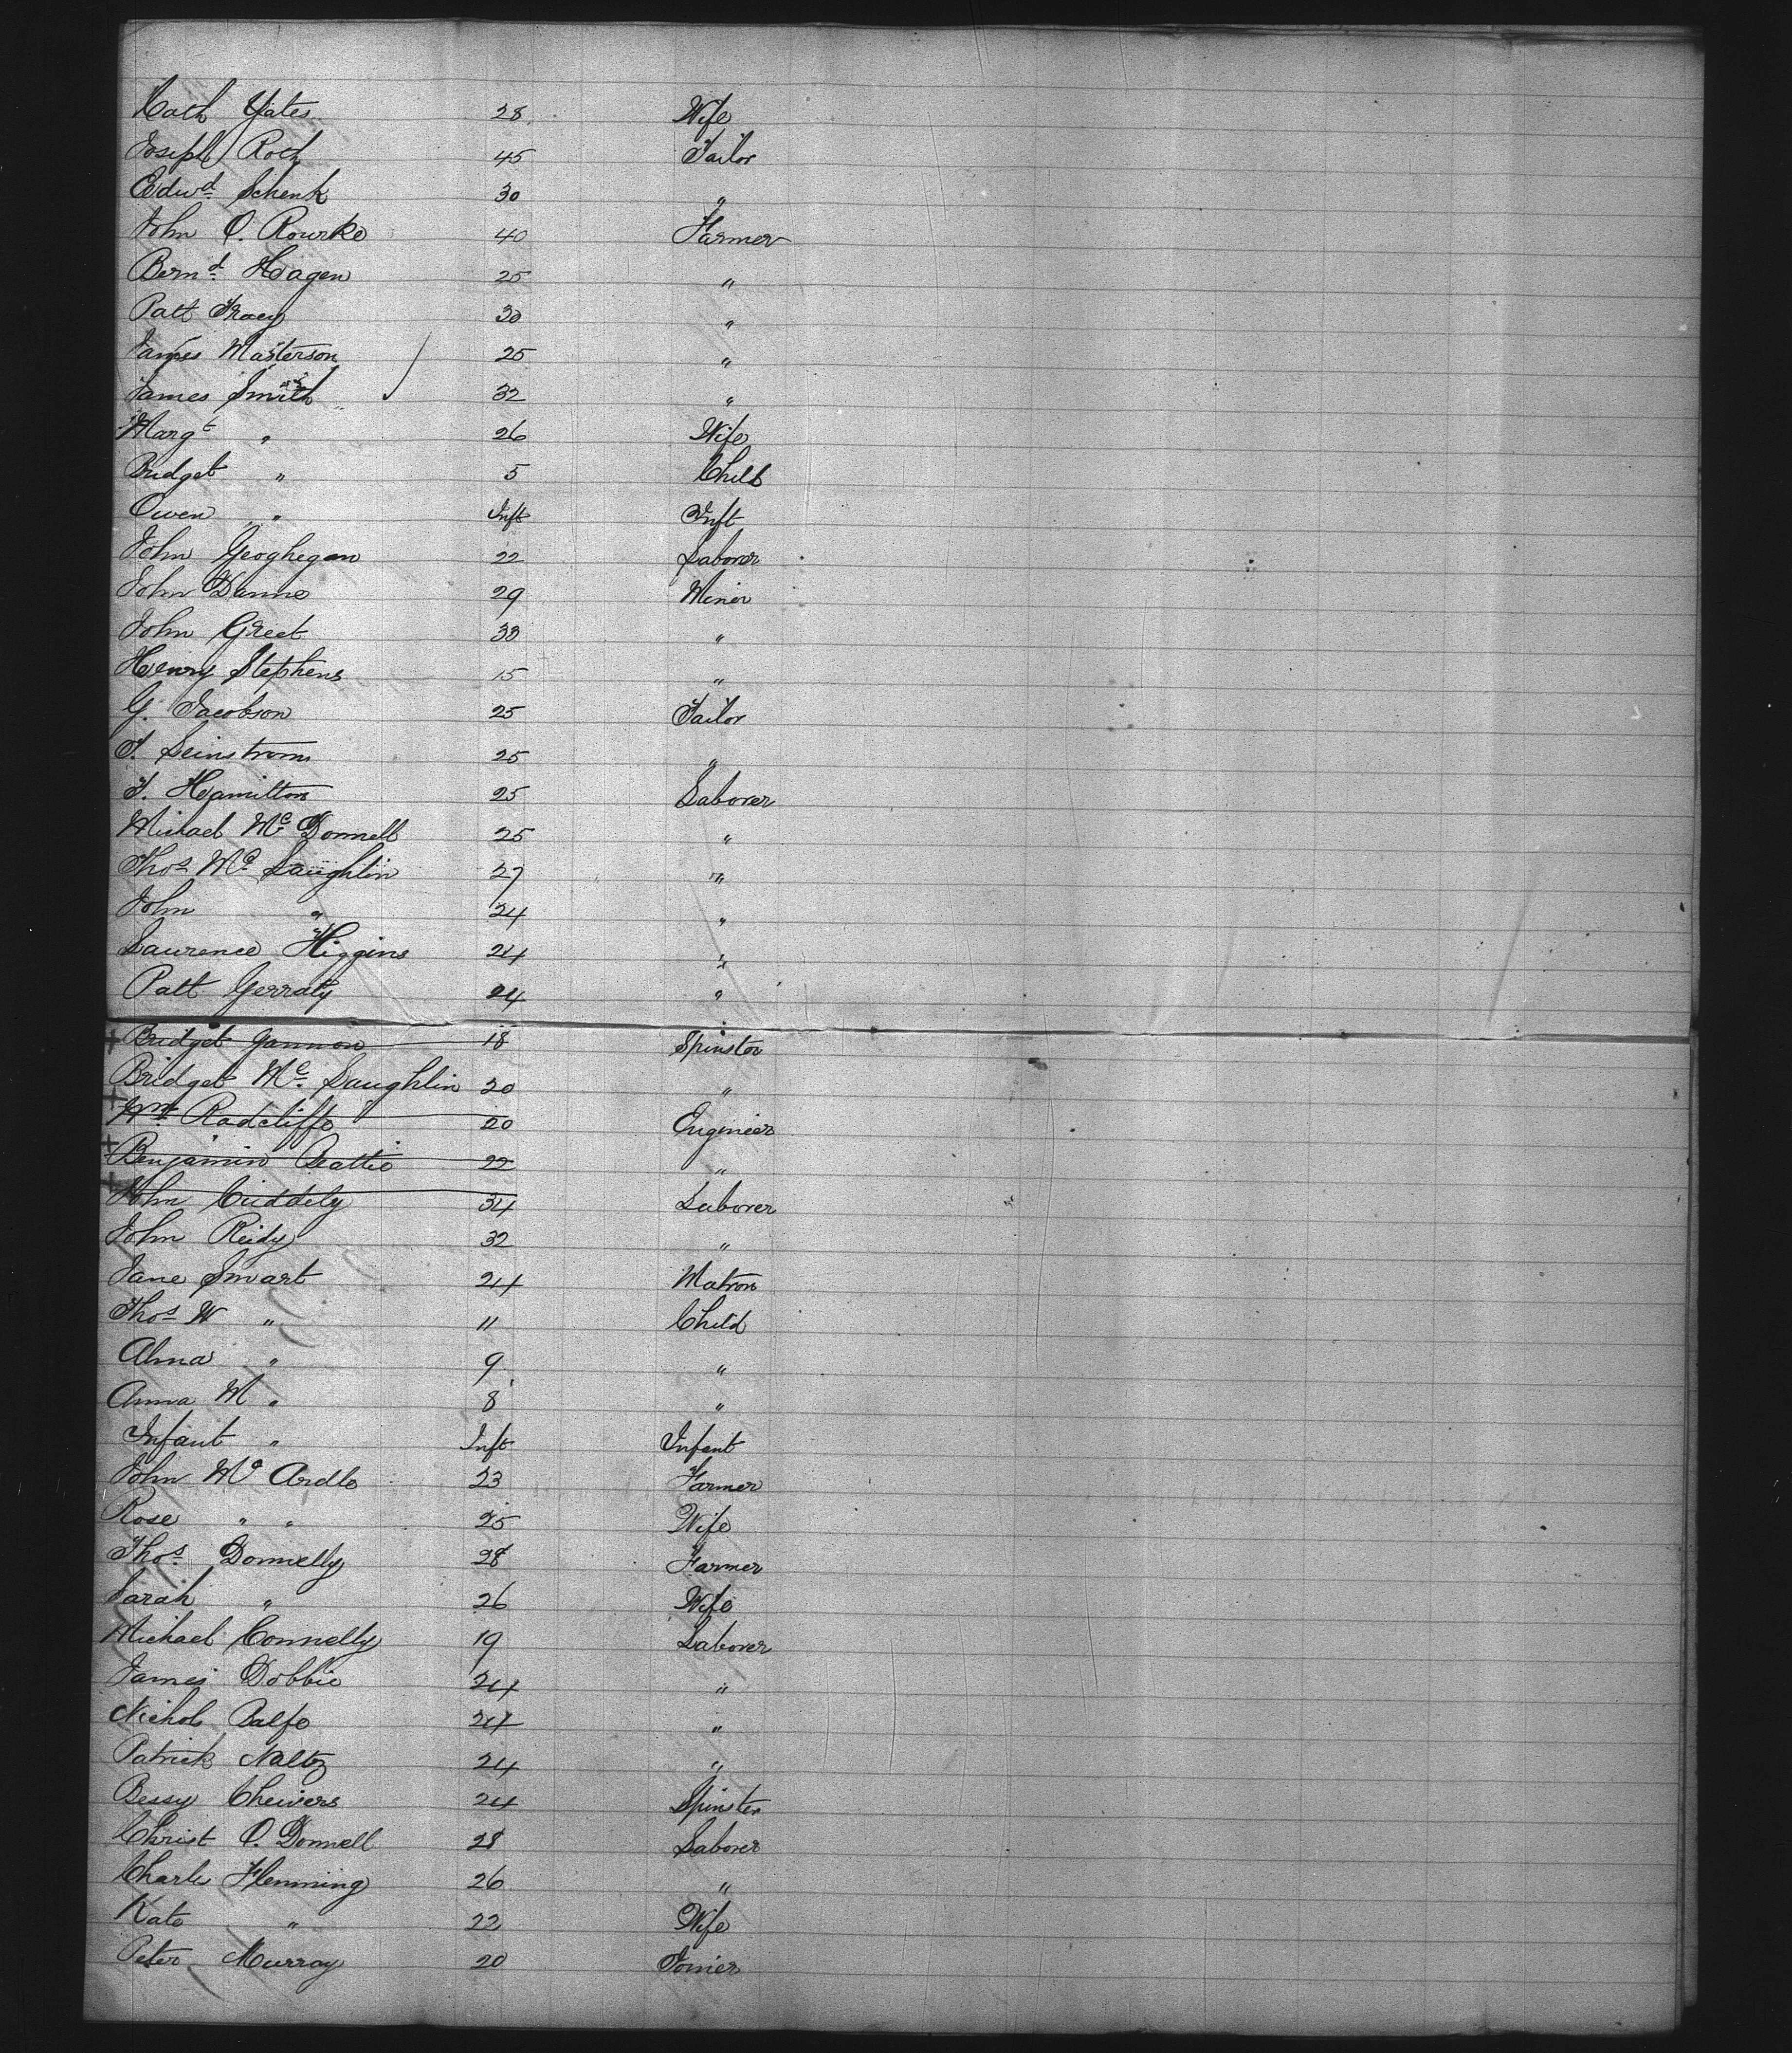 Cath Yates 28 Wife
Joseph Roth 45 Tailor
Edwd Schenk 30 "
John O. Rourke 40 Farmer
Bernd Hagen 25 "
Patt Tracey 30 "
James Masterson 25 "
James Smith 32 "
Margt " 26 Wife
Bridget " 5 Child
Owen " Inft Inft
John Geoghegan 22 Laborer
John Dunne 29 Miner
John Greet 30 "
Henry Stephens 15 "
G. Jacobson 25 Tailor
T. Leinstrom 25 "
T. Hamilton 25 Laborer
Michael Mc Donnell 25 "
Thos Mc Laughlin 27 "
John " 24 "
Laurence Higgins 24 "
Patt Gerraty 24 "
Bridget Gannon 18 Spinster
Bridget Mc Laughlin 20 "
Wm Radcliffe 20 Engineer
Benjamin Beattie 22 "
John Cuddily 34 Laborer
John Reidy 32 "
Jane Smart 24 Matron
Thos W " 11 Child
Alma " 9 "
Anna M " 8 "
Infant " Inft Infant
John Mc Ardle 23 Farmer
Rose " " 25 Wife
Thos Donnelly 28 Farmer
Sarah " 26 Wife
Michael Connelly 19 Laborer
James Dobbie 24 "
Nichol Balfe 24 "
Patrick Nalty 24 "
Bessy Cheivers 24 Spinster
Christ O. Donnell 28 Laborer
Charls Flemming 26 "
Kate " 22 Wife
Peter Murray 20 Joiner